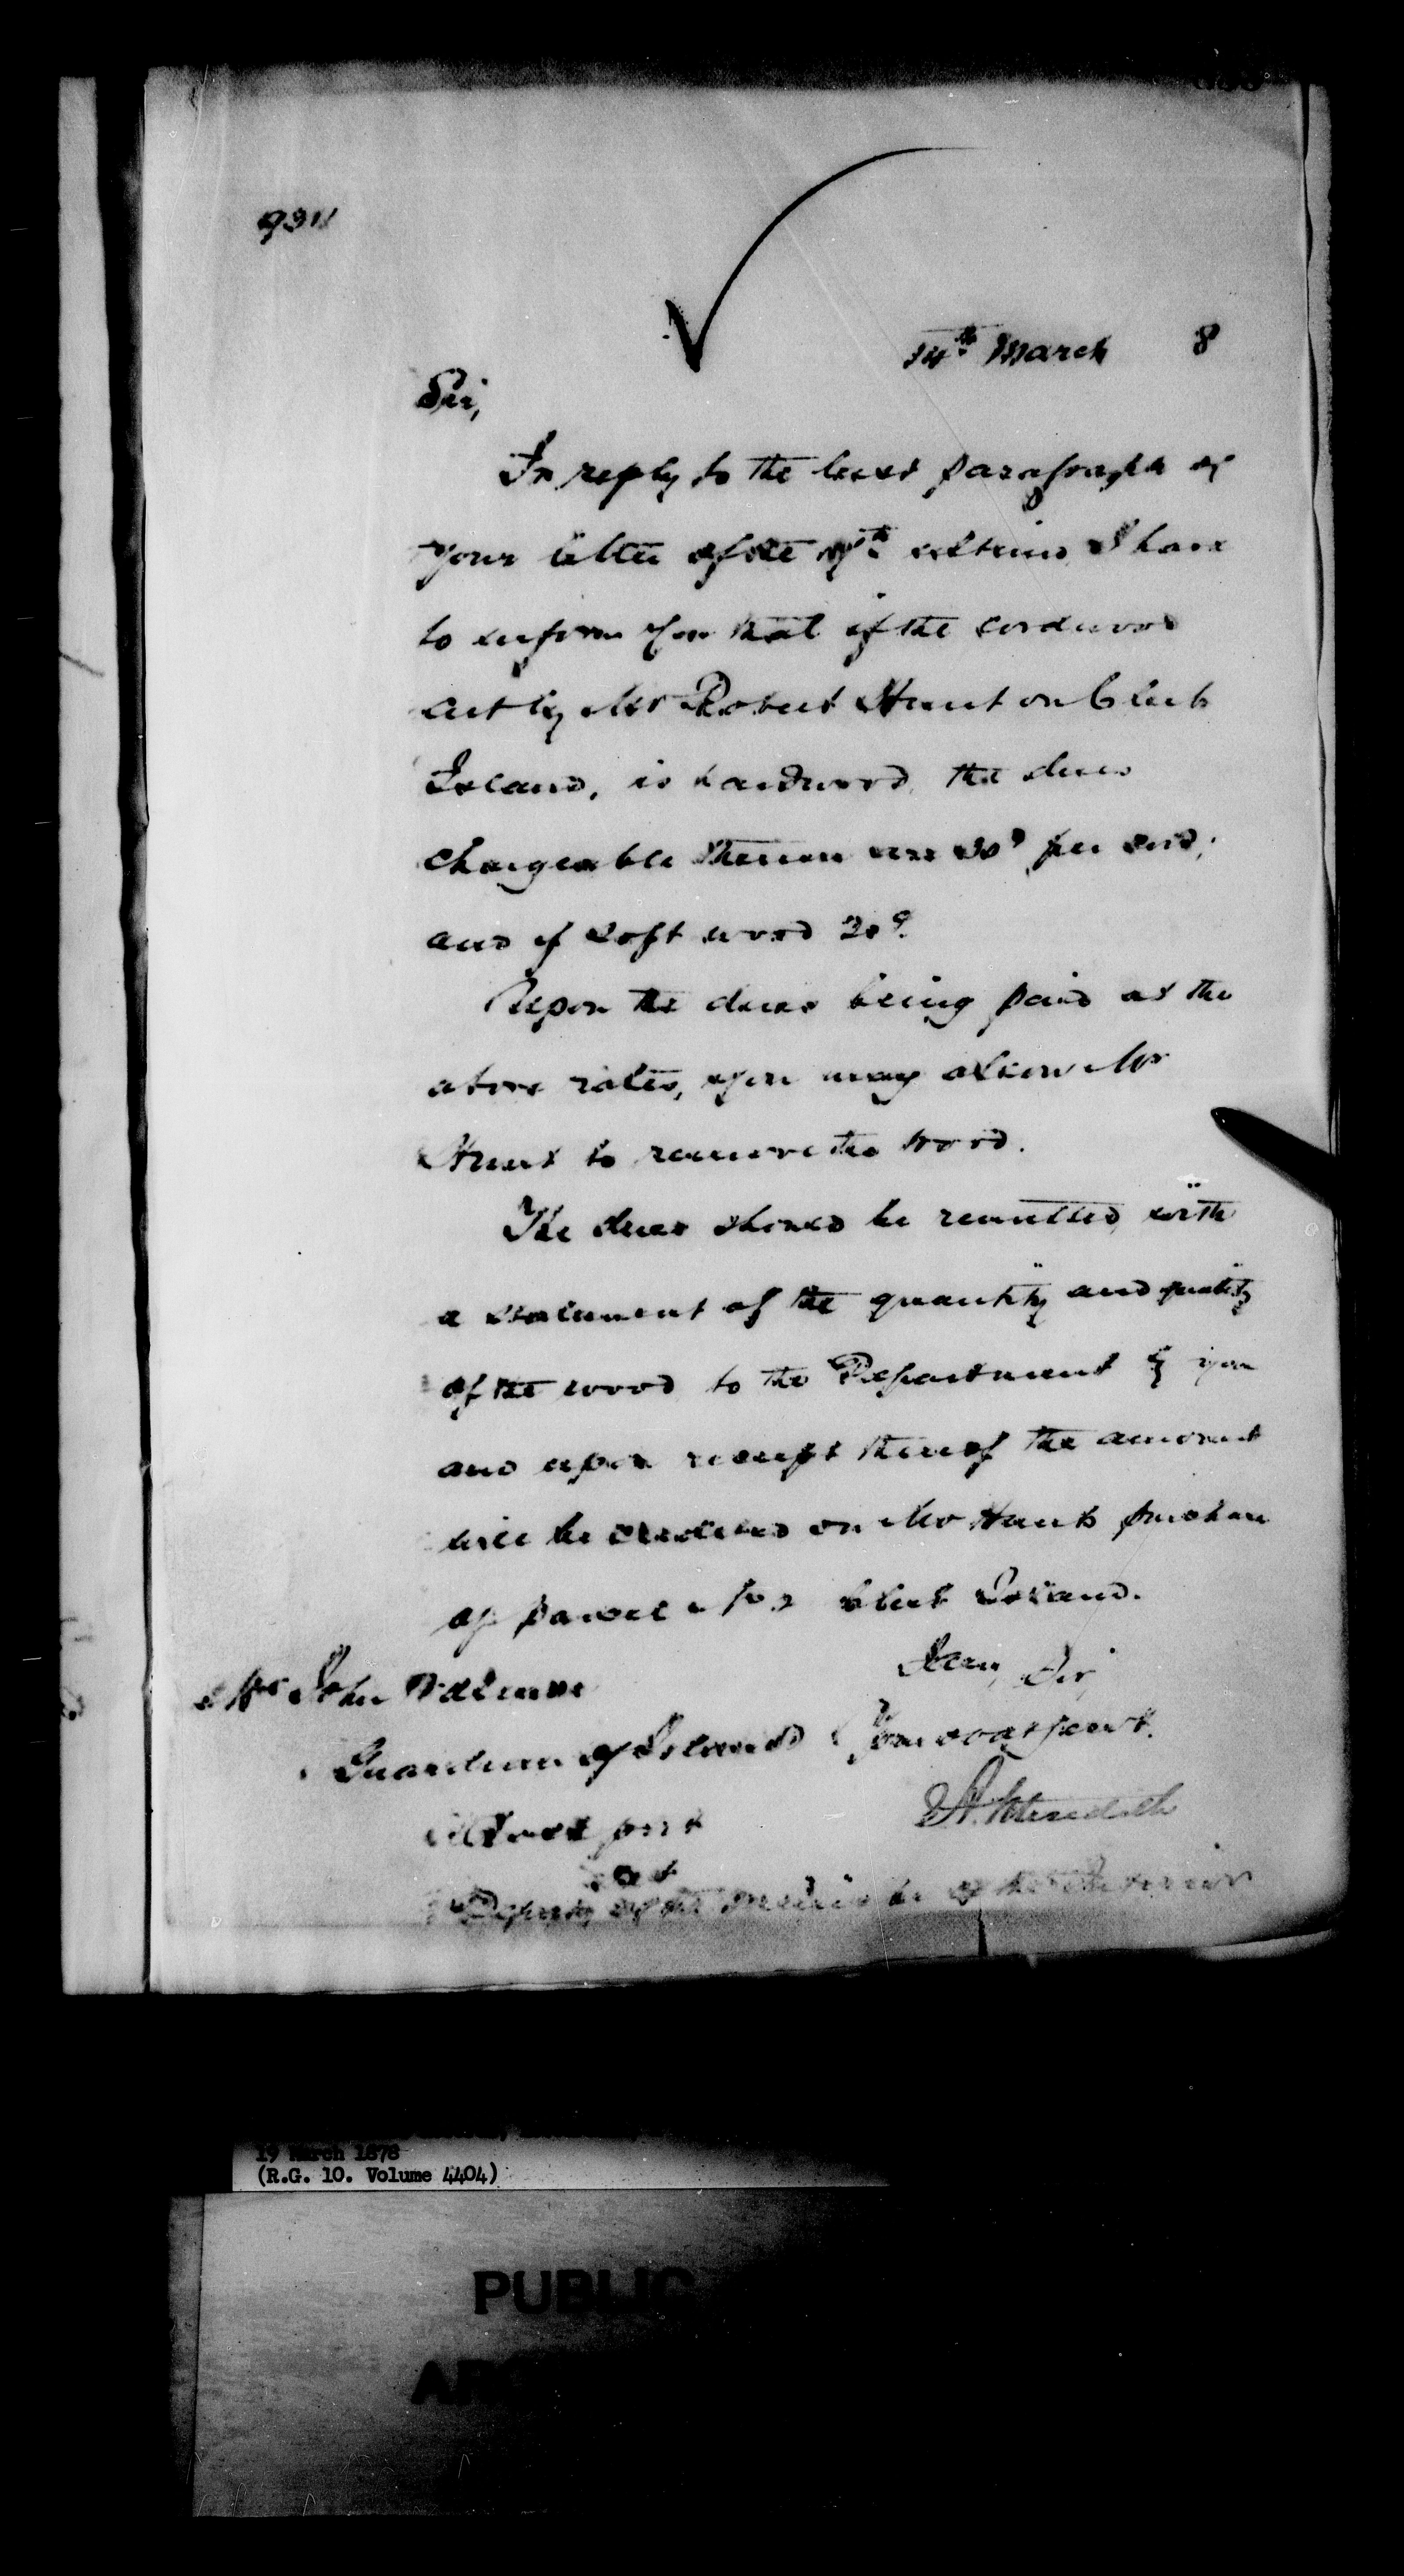 14th March 8
Sir,
In reply to the last paragraph of
your letter of the ultimo I have
to inform you that if the cordwood
cut by Mr Robert Hunt on Club
Island, is hardwood, the dues
chargeable thereon are 30c per cord;
and if soft wood 20c.
Upon the dues being paid at the
above rates, you may allow Mr
Hunt to remove the wood.
The dues should be remitted with
a statement of the quantity and quality
of the wood to the Department by you
and upon receipt thereof the amount
will be credited on Mr Hunts purchase
of parcel No 2 Club Island.
I am, Sir,
Mr John
Guardian of Islands Your obdt servt.
Rockport
Ont
Deputy of the Minister of the Interior
19 March 1878
(R.G. 10. Volume 4404)
PUBLIC